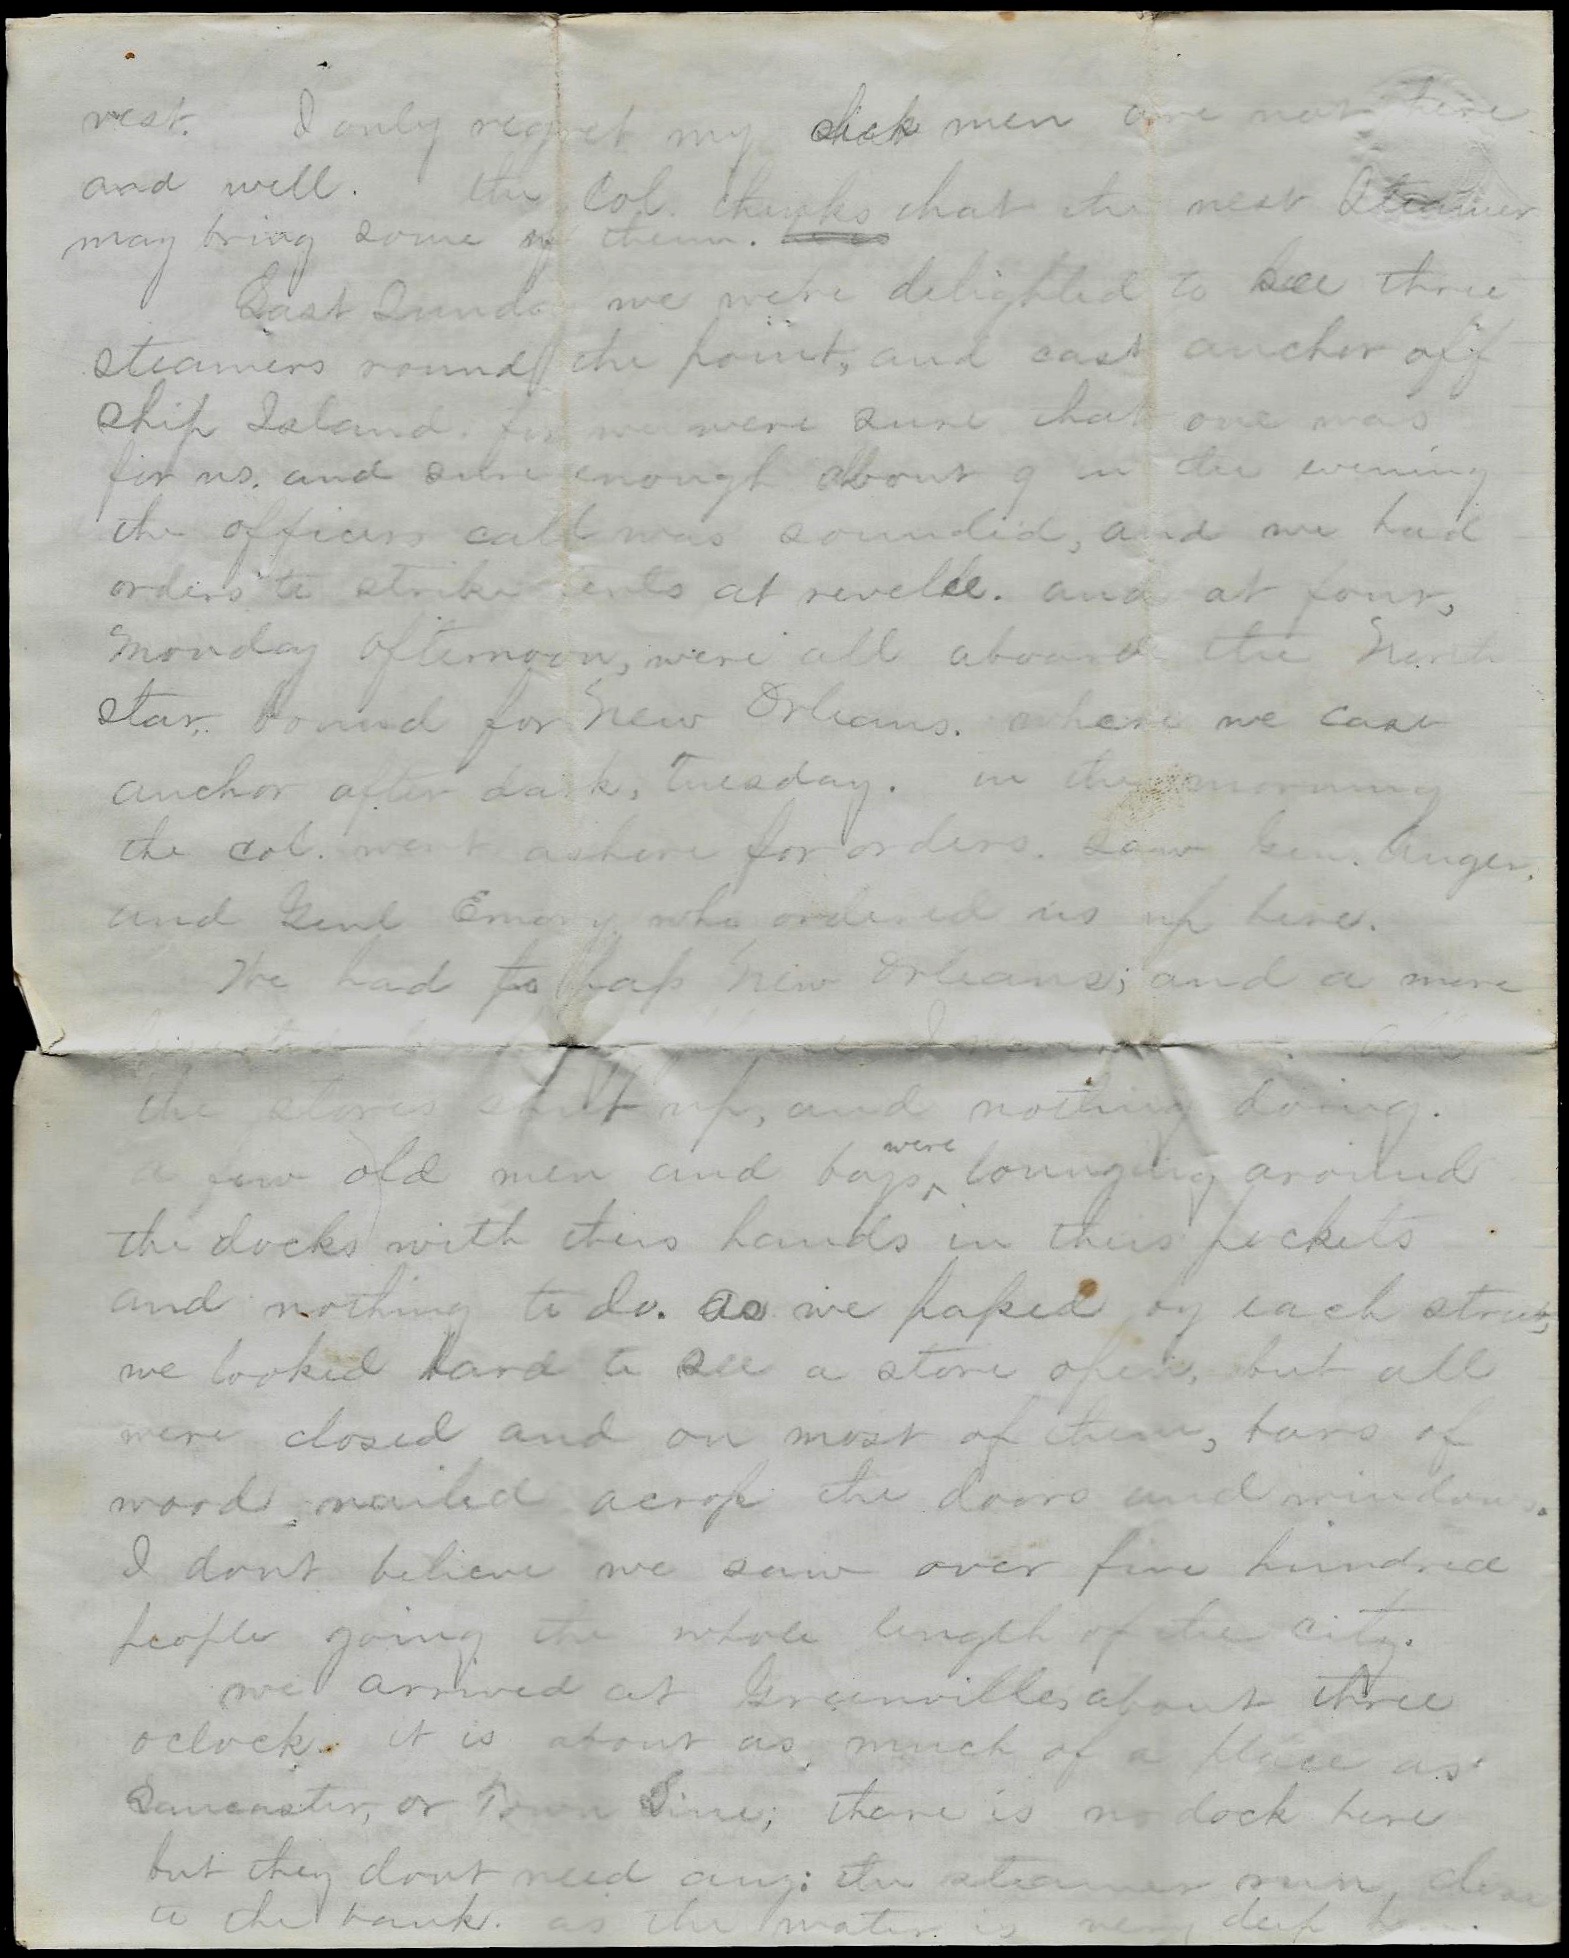 rest. I only regret my sick men are not here
and well. the Col. thinks that the next Steamer
may bring some of them.
Last Sunday we were delighted to see three
steamers round the point, and cast anchor off
Ship Island. for we were sure that one was
for us. and sure enough about 9 in the evening
the officers call was sounded, and we had
orders to strike tents at revellee. and at four,
Monday afternoon, were all aboard the North
Star, bound for New Orleans. where we cast
anchor after dark, Tuesday. in the morning
the Col. went ashore for orders. saw Gen. Auger,
and Genl Emory who ordered us up here.
We had to pass New Orleans; and a more
deserted I never
the stores shut up, and nothing doing.
a few old men and boys were lounging around
the docks with theis hands in theis pockets
and nothing to do. as we passed by each street,
we looked hard to see a store open, but all
were closed and on most of them, bars of
wood nailed across the doors and windows.
I dont believe we saw over five hundred
people going the whole length of the city.
we arrived at Greenville, about three
oclock. it is about as much of a place as
Lancaster, or Town Line; thare is no dock here
but they dont need any: the steamer run close
to the bank. as the water is very deep